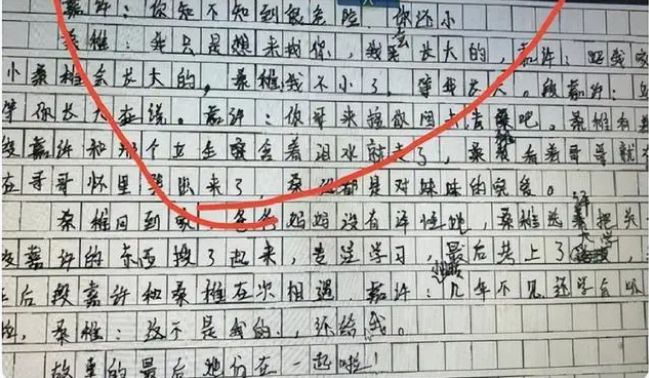 嘉许：你知不知到很危险，你还小
桑稚：我只是想来找你，我会长大的，嘉许：
小桑稚会长大的，桑稚我不小了，等我长大。段嘉许：
等你长大在说。嘉许：你哥来接你回去吧。桑稚有
嘉许和那个女生 含着泪水就走了，桑 看着哥哥就
在哥哥怀里哭出来了，桑 都是对妹妹的宠爱。
桑稚回到家 爸爸妈妈没有 桑稚 把关
嘉许的东西 了起来，专 学习，最后考上了大学
后段嘉许和桑稚在次相遇 嘉许：几年不见还学会
桑稚：这不是我的，还给我。
故事的最后她们在一起啦！